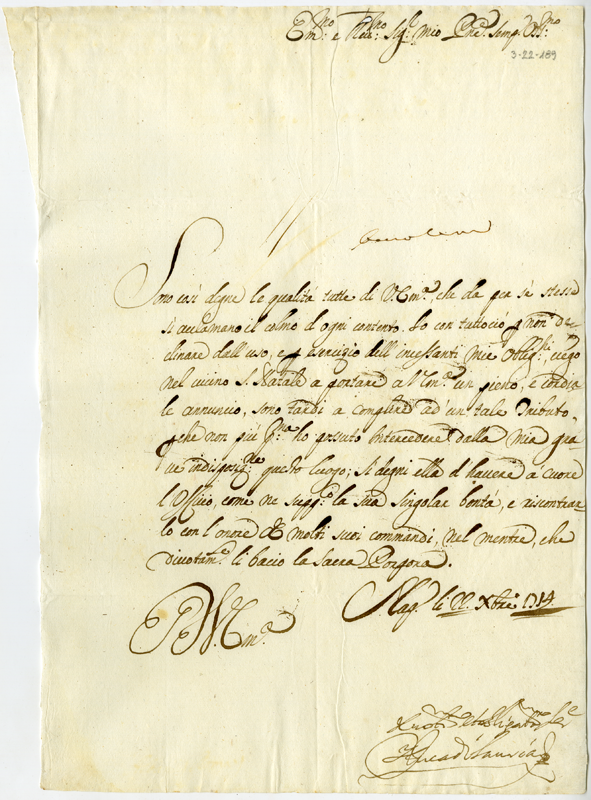 Em:no e Rev:mo Sig: mio P̃ne Semp: Oss:mo
3-22-189
Sono così degne le qualità tutte di V. Em:a, che da per sè stesse
si acclamano il colmo d'ogni contento. Io con tuttociò p non de-
clinare dall'uso, e p esercizio dell'incessanti mie Oblig:ni, vengo
nel vicino S. Natale a portare a V. Em:a un pieno, e cordia
le annuncio, sono tardi a complire ad'un tale Tributo,
p che non più p:ma ho possuto intercedere dalla mia gra-
ve indisposiz:ne questo luogo; si degni ella d'havere à cuore
l'Officio, come ne supp:co la sua singolar bontà, e riscontrar
lo con l'onore di molti suoi commandi, nel mentre, che
divotam:e li bacio la Sacra Porpora.
Nap: li 22 Xbre 1714
V. Em:a